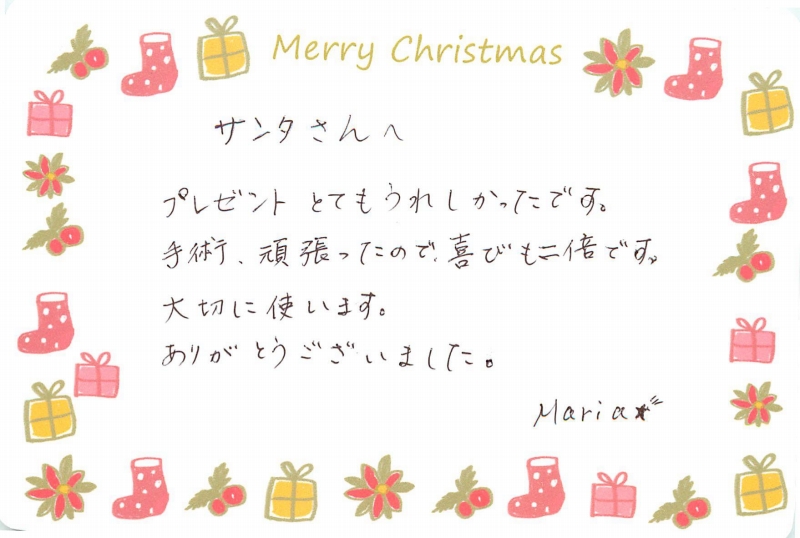 Merry Christmas
サンタさんへ
プレゼントとてもうれしかったです。
手術、頑張ったので、喜びも二倍です。
大切に使います。
ありがとうございました。
Maria